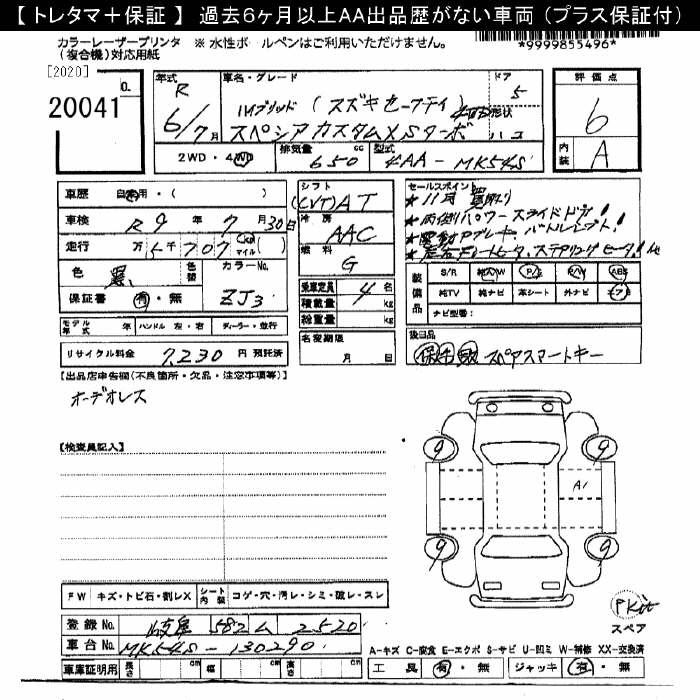 【トレタマ+保証】 過去6ヶ月以上AA出品歴がない車両(プラス保証付)
カラーレーザープリンタ ※水性ボールペンはご利用いただけません。
(複合機)対応用紙
*9999855496*
[2020]
20041
年式 R 6/7月
車名・グレード ハイブリッド(スズキセーフティ)
スペシアカスタムXSターボ
ドア 5
形状 ハコ
評価点 6
内装 A
2WD・4WD
排気量 650 cc
型式 4AA-MK54S
車歴 自家用・( )
車検 R9年7月30日
走行 万5千707 Km マイル ( )
色 黒
色替
カラーNo. ZJ3
保証書 有・無
シフト (CVT)AT
冷房 AAC
燃料 G
乗車定員 4名
積載量 kg
総重量 kg
モデル年式 年 ハンドル 左・右 ディーラー・並行
リサイクル料金 7,230 円 預託済
名変期限 月 日
セールスポイント
*両側パワースライドドア!
*電動Pブレーキ、パドルシフト!
*左右シートヒータ、ステアリングヒータ!
装備品
S/R 純AW P/S P/W ABS
純TV 純ナビ 革シート 外ナビ エアB
ナビ型番:
後日品
保 取 スペアスマートキー
【出品店申告欄(不良箇所・欠品・注意事項等)】
オーデオレス
【検査員記入】
9
9
A1
9
9
FW キズ・トビ石・割レX シート内装 コゲ・穴・汚レ・シミ・破レ・スレ
登録No. 岐阜 582 ム 2520
車台No. MK54S-130290
車庫証明用 長さ cm 幅 cm 高さ cm
Pkit
スペア
A-キズ C-腐食 E-エクボ S-サビ U-凹ミ W-補修 XX-交換済
工具 有・無 ジャッキ 有・無